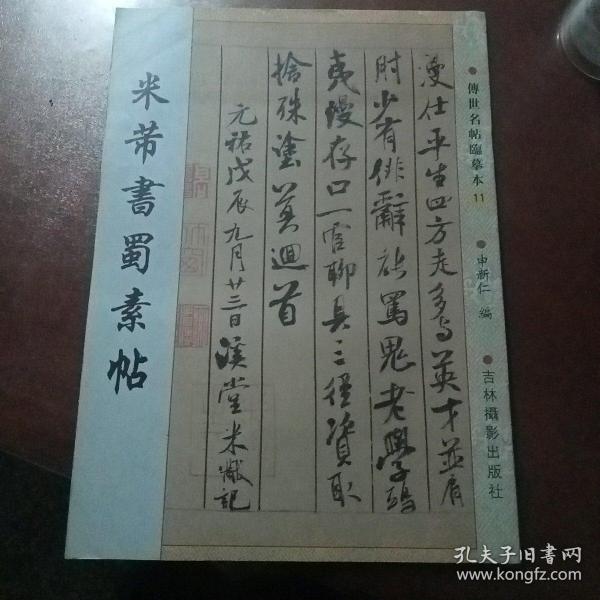 傳世名帖臨摹本 11
申新仁 編
吉林攝影出版社
漫仕平生四方走多与英才並肩
肘少有俳辭能罵鬼老學鴟
夷縵存口一官聊具三徑資取
捨殊塗莫迴首
元祐戊辰九月廿三日溪堂米黻記
米芾書蜀素帖
孔夫子旧书网
www.kongfz.com